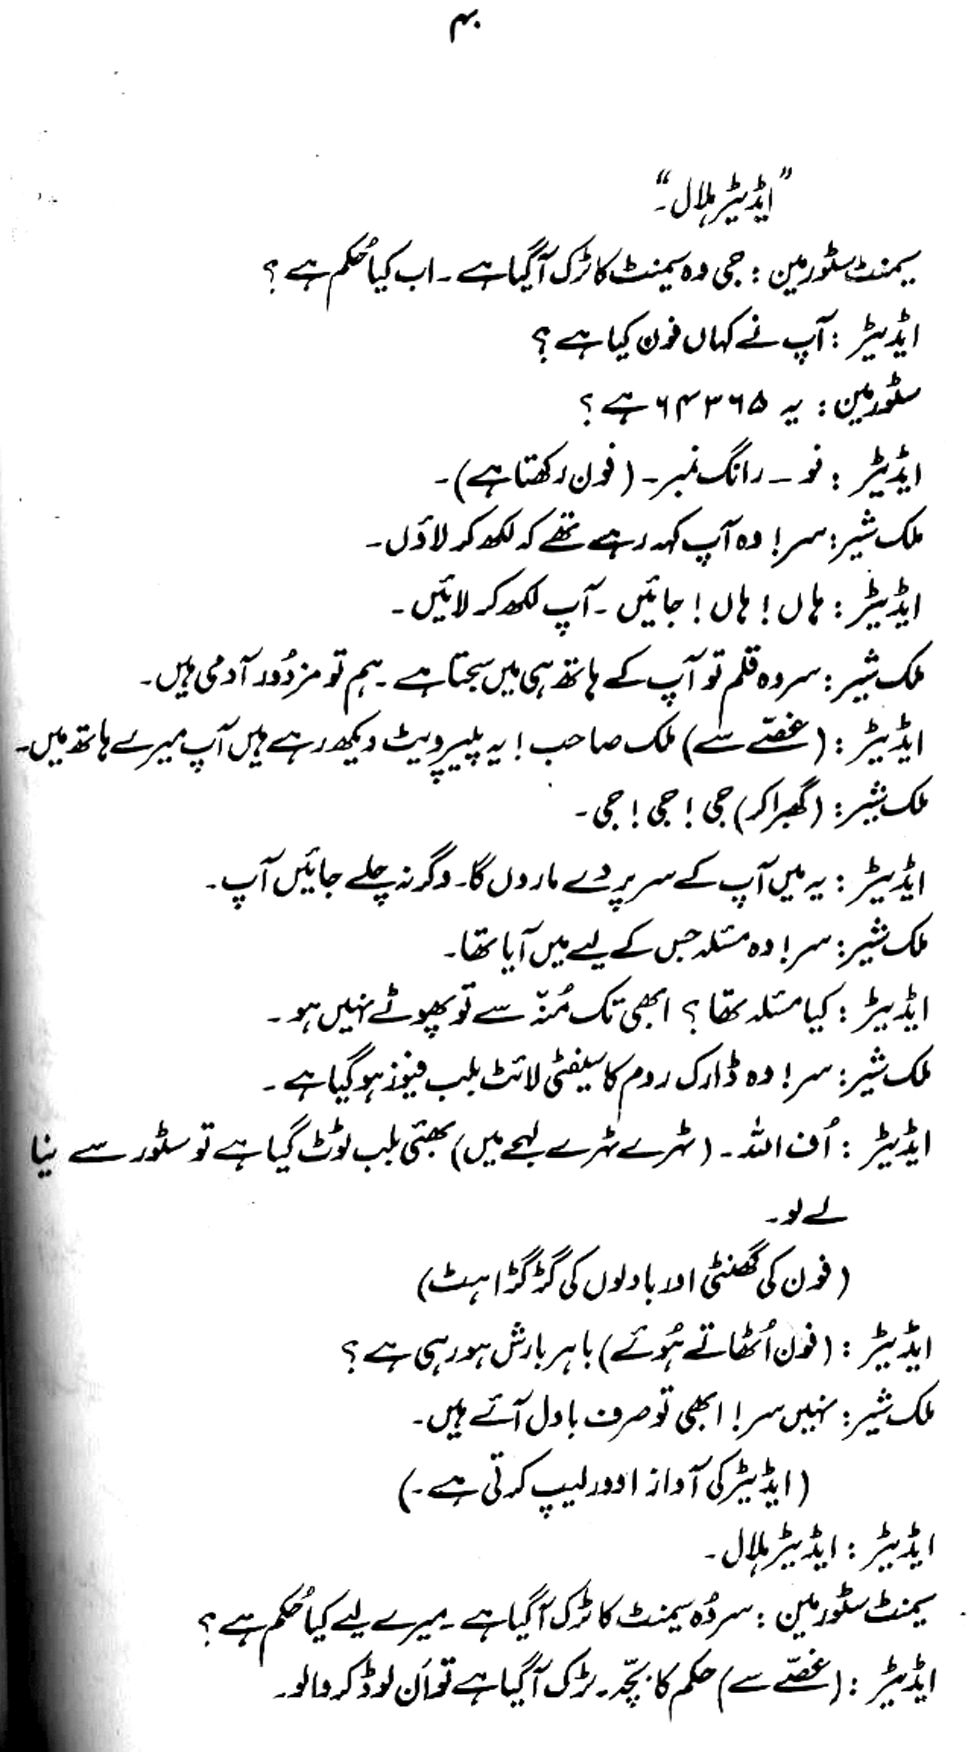 ۴۰
”ایڈیٹر ہلال۔“
سیمنٹ سٹور مین : جی وہ سیمنٹ کا ٹرک آ گیا ہے۔ اب کیا حُکم ہے ؟
ایڈیٹر : آپ نے کہاں فون کیا ہے ؟
سٹور مین : یہ ۶۴۳۶۵ ہے ؟
ایڈیٹر : نو ۔ رانگ نمبر۔ (فون رکھتا ہے)۔
ملک شیر : سر! وہ آپ کہہ رہے تھے کہ لکھ کر لاؤں۔
ایڈیٹر : ہاں ! ہاں ! جائیں ۔ آپ لکھ کر لائیں ۔
ملک شیر : سر وہ قلم تو آپ کے ہاتھ ہی میں سجتا ہے ۔ ہم تو مزدُور آدمی ہیں۔
ایڈیٹر : (غصّے سے) ملک صاحب ! یہ پیپر ویٹ دیکھ رہے ہیں آپ میرے ہاتھ میں۔
ملک شیر : (گھبرا کر) جی ! جی ! جی ۔
ایڈیٹر : یہ میں آپ کے سر پر دے ماروں گا۔ وگرنہ چلے جائیں آپ ۔
ملک شیر : سر! وہ مسئلہ جس کے لیے میں آیا تھا۔
ایڈیٹر : کیا مسئلہ تھا ؟ ابھی تک مُنہ سے تو پھوٹے نہیں ہو ۔
ملک شیر : سر! وہ ڈارک روم کا سیفٹی لائٹ بلب فیوز ہو گیا ہے ۔
ایڈیٹر : اُف اللہ ۔ (ٹہرے ٹہرے لہجے میں) بھئی بلب ٹوٹ گیا ہے تو سٹور سے نیا
لے لو۔
(فون کی گھنٹی اور بادلوں کی گڑگڑاہٹ)
ایڈیٹر : (فون اُٹھاتے ہُوئے) باہر بارش ہو رہی ہے ؟
ملک شیر : نہیں سر! ابھی تو صرف بادل آئے ہیں۔
(ایڈیٹر کی آواز اوورلیپ کرتی ہے ۔)
ایڈیٹر : ایڈیٹر ہلال ۔
سیمنٹ سٹور مین : سر وُہ سیمنٹ کا ٹرک آ گیا ہے ۔ میرے لیے کیا حُکم ہے ؟
ایڈیٹر : (غصّے سے) حکم کا بچّہ۔ ٹرک آ گیا ہے تو اَن لوڈ کروا لو۔